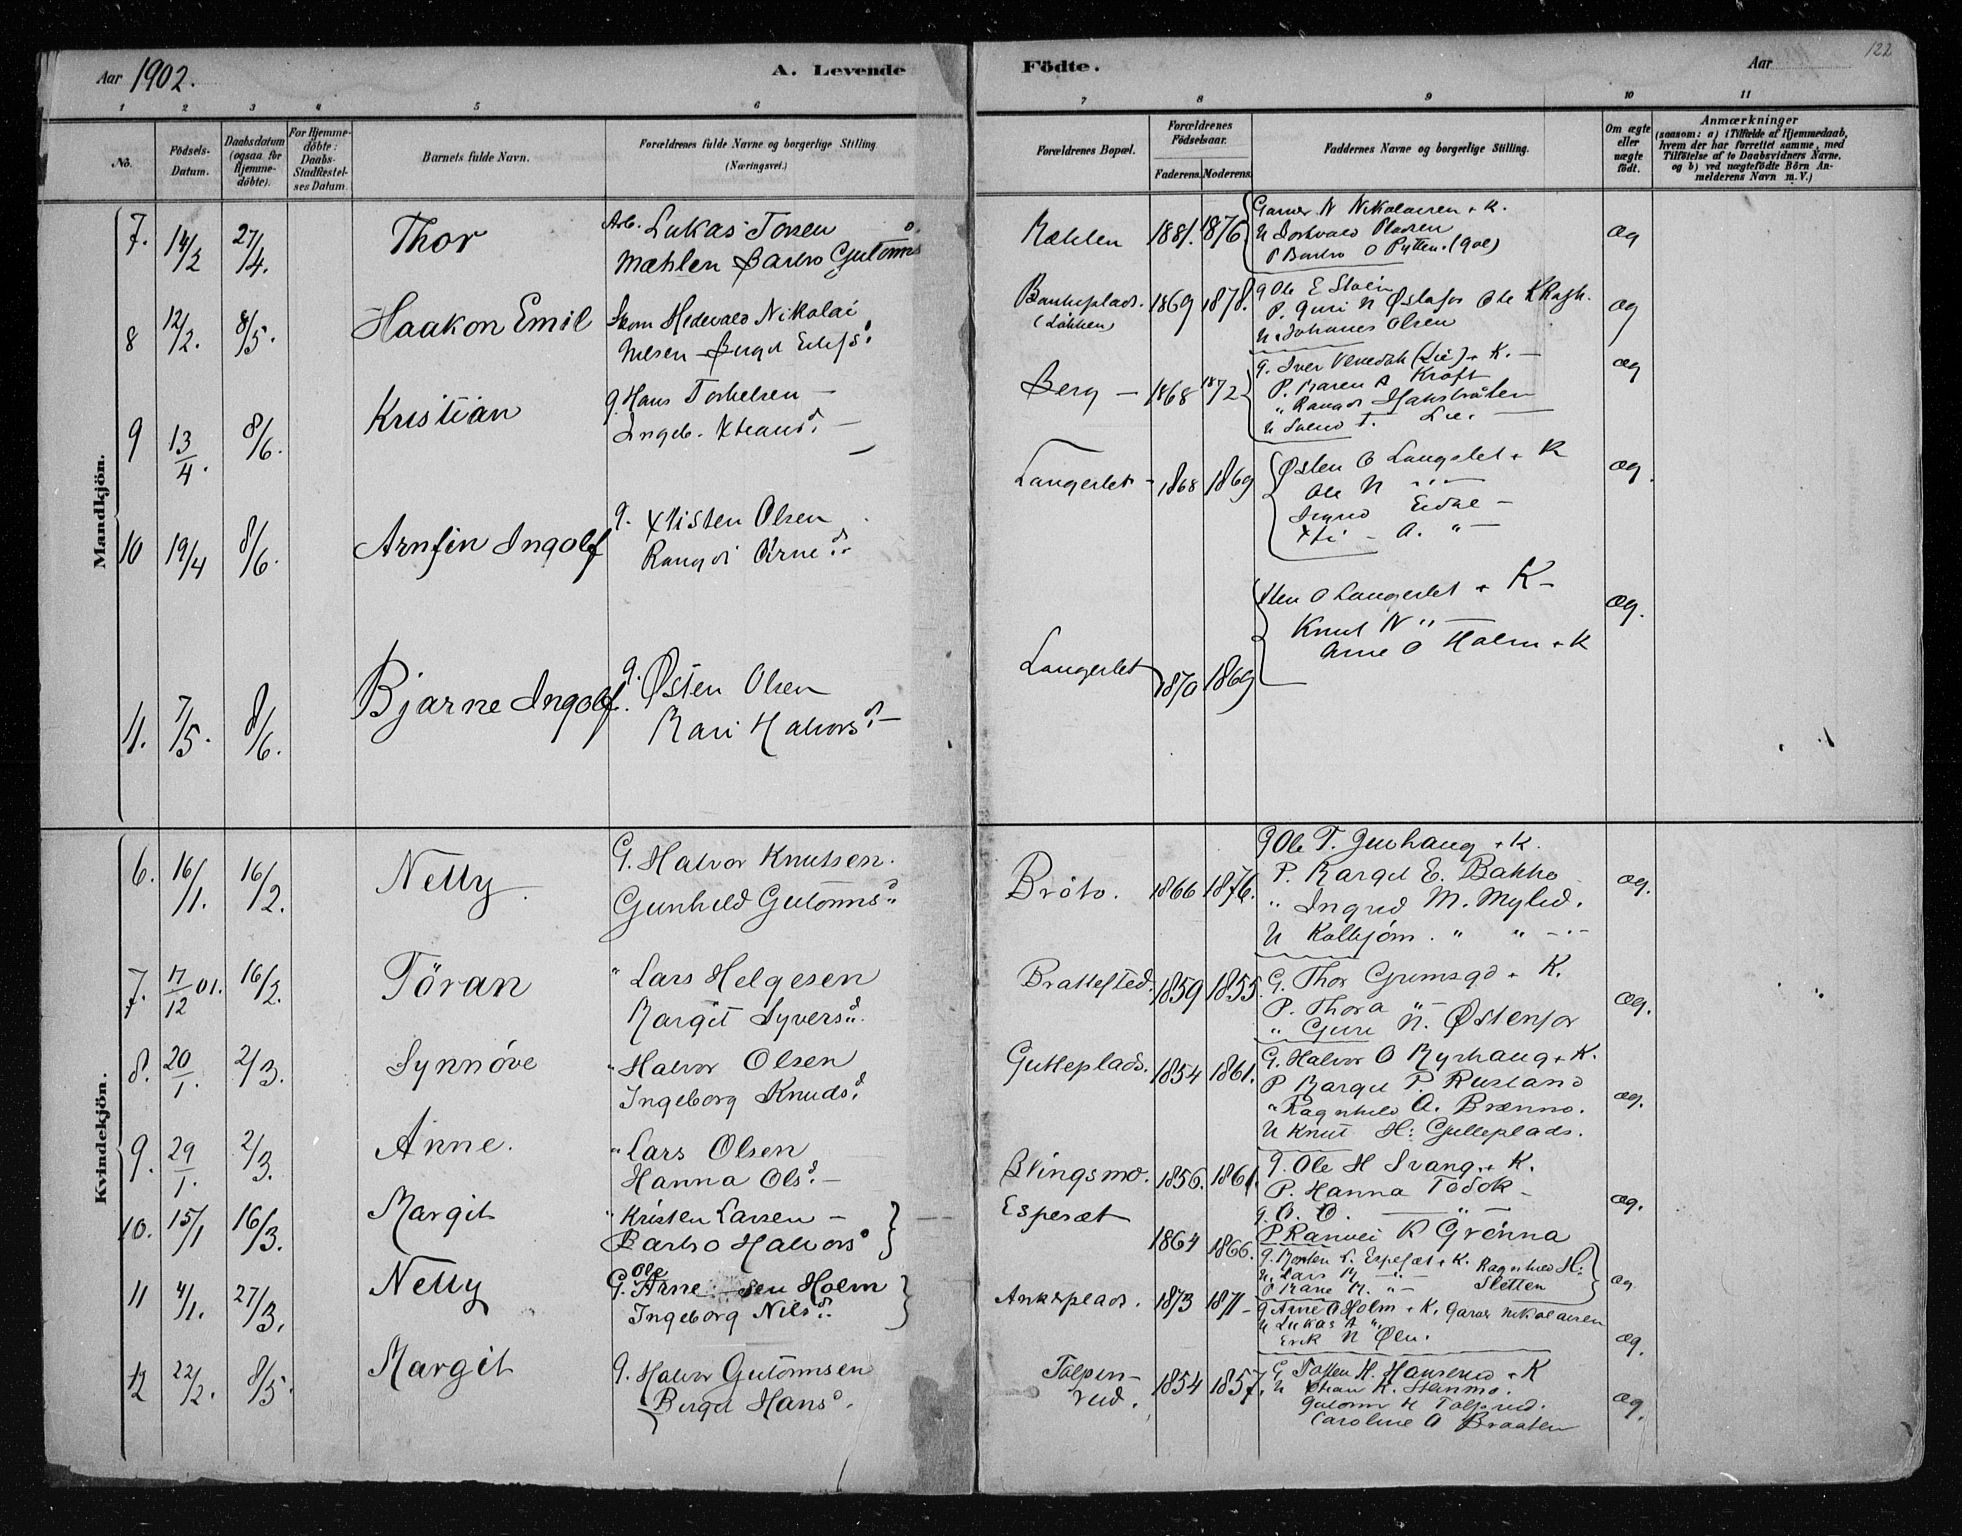 Aar 1902.
A. Levende
Födte.
Aar
122
1 2 3 4 5 6
7 8 9 10 11
No.
Födsels-Datum.
Daabsdatum (ogsaa for Hjemmedöbte).
For Hjemmedöbte: Daabs-Stadfæstelses Datum.
Barnets fulde Navn.
Forældrenes fulde Navne og borgerlige Stilling (Næringsvei.)
Forældrenes Bopæl.
Forældrenes Födselsaar.
Faderens. Moderens.
Faddernes Navne og borgerlige Stilling.
Om ægte eller uægte födt.
Anmærkninger
(saasom: a) i Tilfælde af Hjemmedaab,
hvem der har forrettet samme, med
Tilföielse af to Daabsvidners Navne,
og b) ved uægtefödte Börn Anmelderens Navn m. V.)
Mandkjön.
7. 14/2 27/4. Thor
Arb. Lukas Torsen
Mæhlen Barbro Gutorms
Mæhlen 1881. 1876.
Garner N Nikolaisen + K.
P Barbro O Pytten. (Gol)
æg
8 12/2. 8/5. Haakon Emil
Nikolai
Nilsen
(Løkken) 1869 1878.
g Ole E Stoen
P. Guri N Østafor
U. Johanes Olsen
æg
9 13/4. 8/6. Kristian
g. Hans Torkelsen —
Ingeb. Xtians d. —
Berg — 1868 1872
g. Iver (Lie) + K. —
P. Karen A Kraft
Lie.
æg
10 19/4 8/6. Arnfin Ingolf
g. Xtisten Olsen
Rangdi Arne d.
Langeslet — 1868 1869
Østen O Langeslet + K
Ole N " —
Eidal —
Xti — A. " —
æg.
11. 7/5. 8/6. Bjarne Ingolf.
g. Østen Olsen
Kari Halvors d. —
Langeslet 1870 1869
O Langeslet + K —
Knut N " —
Arne O Holm + K
æg.
Kvindekjön.
6. 16/1. 16/2. Nelly
G. Halvor Knutsen.
Gunhild Gutorms d.
Bröto. 1866 1876.
g Ole T. + K.
P. Margit E. Bakko
" Ingrid M. Mylid.
U Kolbjörn. " " —
æg.
7. 17/12 01. 16/2. Töran
" Lars Helgesen
Margit Syvers d.
Brattested. 1859 1855.
G. Thor Grimsgd + K.
P. Thora " —
" Guri N. Østenfor
æg.
8. 20/1. 2/3. Synnöve
" Halvor Olsen
Ingeborg Knuds d.
Gulleplads. 1854 1861.
G. Halvor O Myrhaug + K.
P Margit P. Rusland
" Ragnhild A. Brænno.
U Knut H: Gulleplads.
æg.
9. 29/1. 2/3. Anne.
" Lars Olsen
Hanna Ols d. —
Blingsmo. 1856. 1861.
g. Ole H Svang. + K.
P. Hanna Todok —
g. O. O. — " —
P Ranvei K Grönna
æg.
10. 15/1 16/3. Margit
" Kristen Larsen —
Barbro Halvors d
Espesæt 1864 1866.
g. Morten L. Espeset + K. Ragnhild H:
U. Lars M — " — Sletten
P Kari M. " —
æg
11 4/1. 27/3. Nelly
Ole
G. Arne sen Holm
Ingeborg Nils d.
Ankerplads. 1873 1871 —
g Arne O Holm + K. Garner Nikolaisen
U Lukas A "
Erik N Øln.
æg.
12 22/2. 8/5. Margit
g. Halvor Gutormsen
Birgit Hans d.
Tolpinrud. 1854 1857.
G. H. Hansrud + K
U Xtian K. Stenmo.
Gutorm H Tolpirud.
Caroline O Braaten
æg.